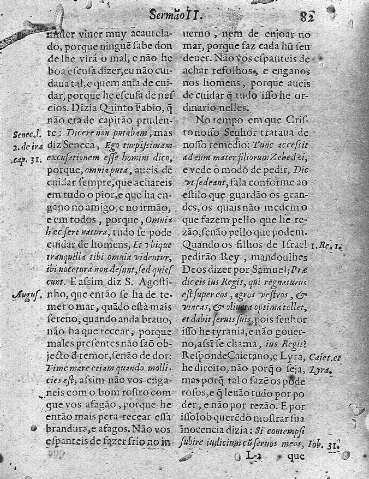 Sermão II. 82
mister viver muy acautela-
do, porque ninguẽ sabe don
de lhe virá o mal, e não he
boa escusa dizer, eu não cui-
daua tal, e quem auia de cui-
dar, porque he escusa de nes-
cios. Dizia Quinto Fabio, q̃
não era de capitão pruden-
te: Dicere non putabam, mas
diz Seneca, Ego turpissimam
excusationem esse homini dico,
porque, omnia puta, aueis de
cuidar sempre, que achareis
em tudo o pior, e que ha en-
gano no amigo, e no irmão,
e em todos, porque, Omnia
hæc fert natura, tudo se pode
cuidar de homens, Et vbique
tranquilla tibi omnia videntur,
ibi nocetura non desunt, sed quies
cunt. E assim diz S. Agosti-
nho, que então se ha de te-
mer o mar, quãdo està mais
sereno, quando anda brauo,
não ha que recear, porque
males presentes não saõ ob-
jecto d temor, senão de dor:
Time mare etiam quando malli-
cies est, assim não vos enga-
neis com o bom rostro com
que vos afagão, porque he
então mais pera recear essa
brandura, e afagos. Não vos
espanteis de fazer frio no in
Senec. l.
2. de ira
cap. 31.
Augus.
uerno, nem de enjoar no
mar, porque faz cada hũ seu
dener. Não vos espanteis de
achar refolhos, e enganos
nos homens, porque aueis
de cuidar q̃ tudo isso he or-
dinario nelles.
No tempo em que Cris-
to nosso Senhor trataua de
nosso remedio: Tunc accessit
ad eum mater filiorum Zebedæi,
e vede o modo de pedir, Dic
vt sedeant, fala conforme ao
estilo que guardão os gran-
des, os quais não medem o
que fazem pello que he re-
zão, senão pello que podem.
Quando os filhos de Israel
pedirão Rey, mandoulhes
Deos dizer por Samuel; Præ
dic eis ius Regis, qui regnaturus
est super eos, agros vestros, &
vineas, & oliueta optima tollet,
et dabit seruis suis, pois senhor
isso he tyrania, e não gouer-
no, assi se chama, ius Regis?
Responde Caietano, e Lyra,
he direito, não porq̃ o seja,
mas porq̃ tal o fazẽ os pode
rosos, e q̃ lenão tudo por po
der, e não por rezão. E por
isso Iob querẽdo mostrar sua
innocencia dizia: Si contempsi
subire iudicium cũ seruo meo,
1. Re. 8.
Caiet. et
Lyra.
Iob. 31.
L 2 que